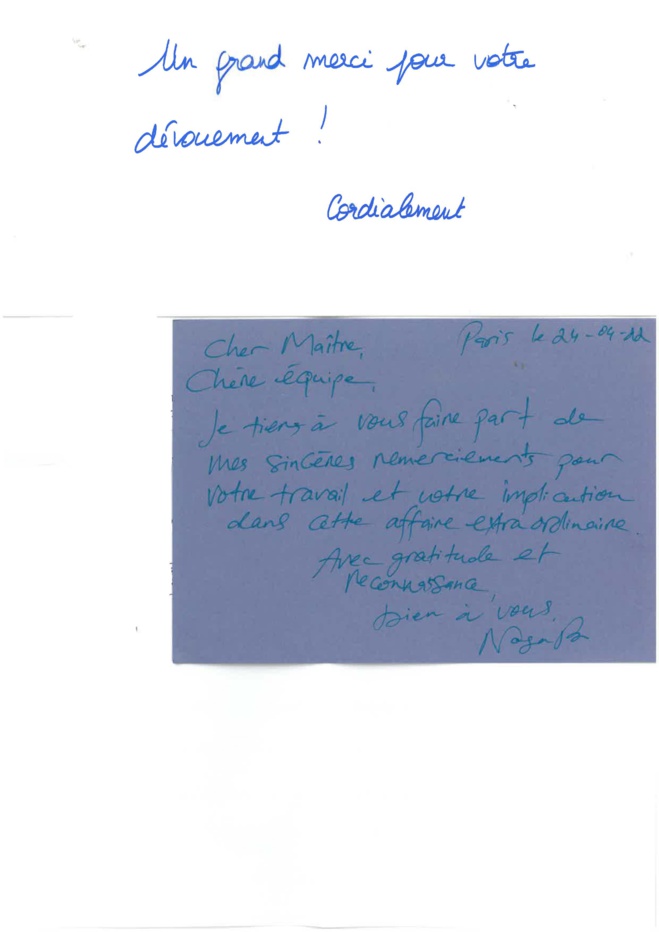 Un grand merci pour votre
dévouement !
Cordialement
Paris le 24-04-22
Cher Maître,
Chère équipe,
Je tiens à vous faire part de
mes sincères remerciements pour
votre travail et votre implication
dans cette affaire extraordinaire
Avec gratitude et
reconnaissance,
bien à vous.